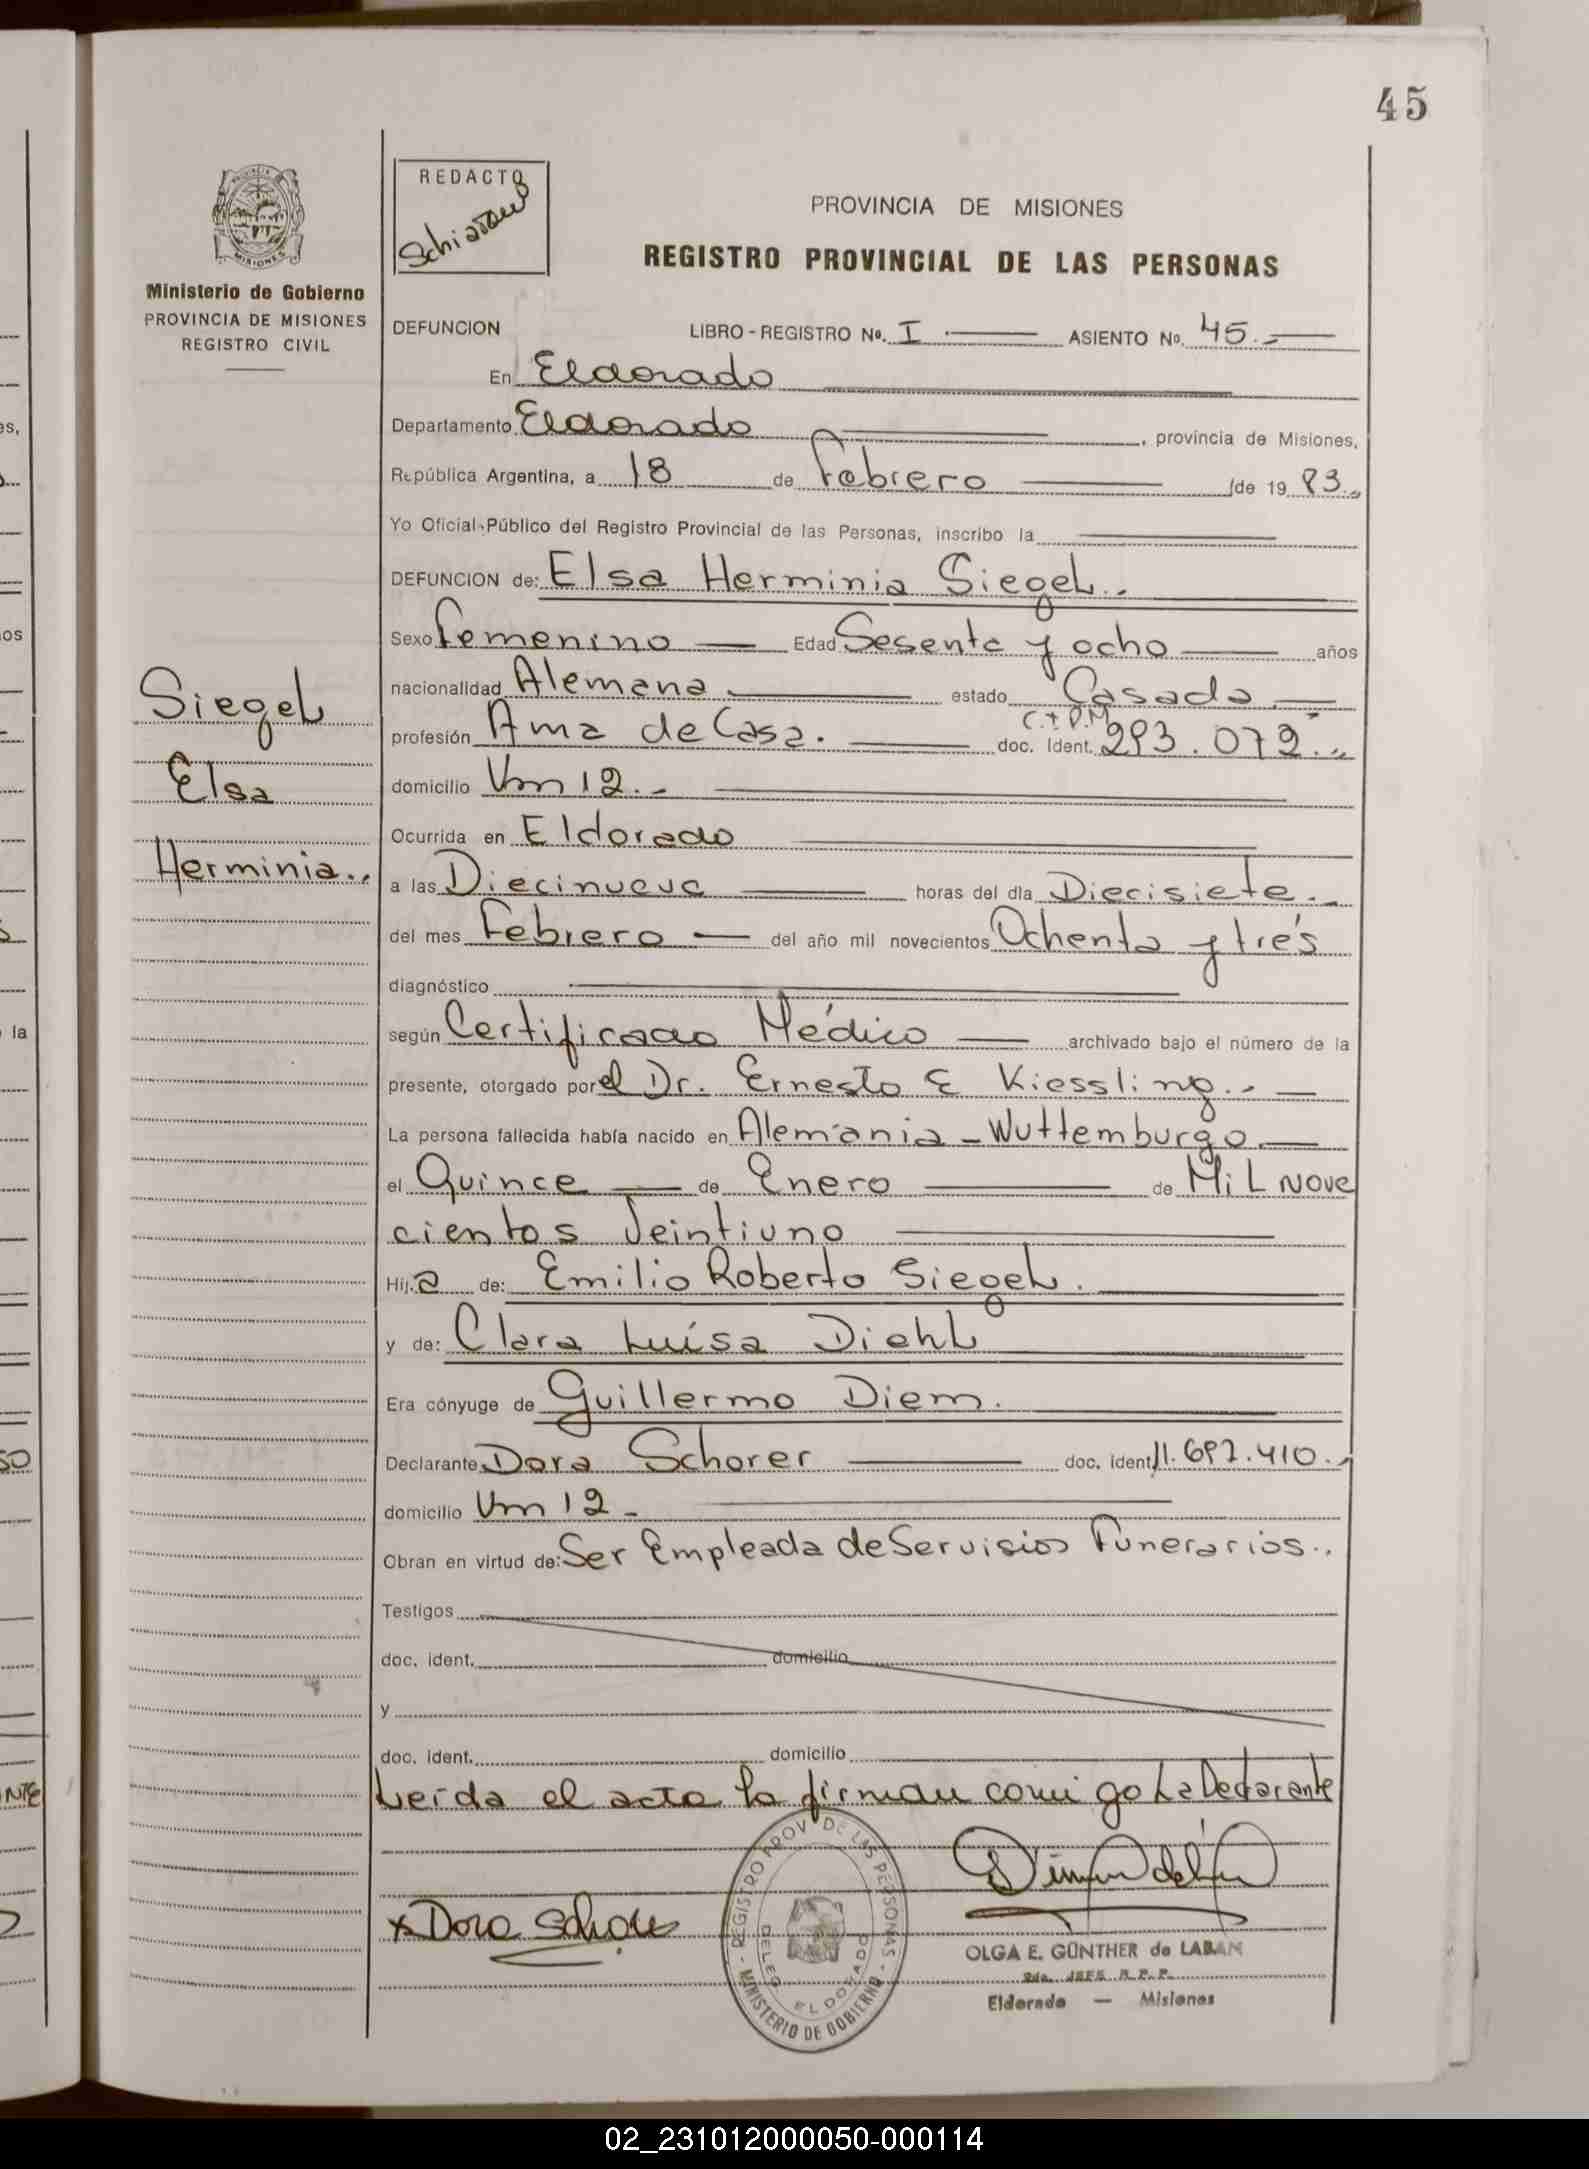 45
REDACTO
PROVINCIA DE MISIONES
REGISTRO PROVINCIAL DE LAS PERSONAS
MISIONES
Ministerio de Gobierno
PROVINCIA DE MISIONES
REGISTRO CIVIL
DEFUNCION LIBRO - REGISTRO No. I ASIENTO No. 45.-
En Eldorado
Departamento Eldorado , provincia de Misiones,
República Argentina, a 18 de Febrero de 19 83..
Yo Oficial Público del Registro Provincial de las Personas, inscribo la
DEFUNCION de: Elsa Herminia Siegel..
Sexo Femenino Edad Sesenta y ocho años
nacionalidad Alemana estado Casada
profesión Ama de Casa. doc. Ident. 293.079..
domicilio Km 12.-
Ocurrida en Eldorado
a las Diecinueve horas del día Diecisiete.-
del mes Febrero del año mil novecientos Ochenta y tres
diagnóstico
según Certificado Médico archivado bajo el número de la
presente, otorgado por el Dr. Ernesto E Kiessling..
La persona fallecida había nacido en Alemania - Wuttemburgo
el Quince de Enero de Mil Nove
cientos Veintiuno
Hij a de: Emilio Roberto Siegel.
y de: Clara Luísa Diehl
Era cónyuge de Guillermo Diem.
Declarante Dora Schorer doc. ident. 11.692.410.
domicilio Km 12 -
Obran en virtud de: Ser Empleada de Servisios Funerarios..
Testigos
doc. ident. domicilio
y
doc. ident. domicilio
Leída el acta la firman conmigo La Declarante
Siegel
Elsa
Herminia..
x Dora Schorer
REGISTRO PROV. DE LAS PERSONAS - MINISTERIO DE GOBIERNO -
DELEG ELDORADO
OLGA E. GÜNTHER de LABAN
2da. JEFE R.P.P.
Eldorado — Misiones
02_231012000050-000114